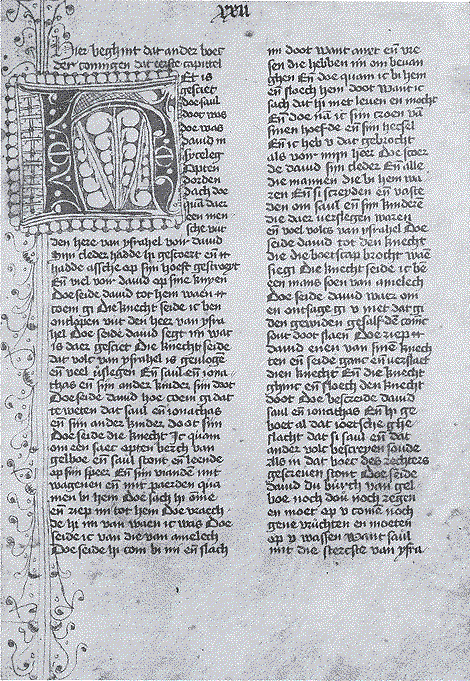 xxii
hier beghint dat ander boec
der coningen dat eerste capittel
Et is
gesciet
doe saul
doot was
doe was
dauid in
sycelegh
Opten
dorden
dach doe
quam daer
een men
sche wt
den here van ysrahel voir dauid
Sijn cleder hadde hi gescoert en̄ tt
hadde assche op sijn hoeft gestroyt
En̄ viel voir dauid op sine knyen
Doe seide dauid tot hem waen
coem gi Die knecht seide ic ben
ontlopen wt den heer van ysra
hel Doe seide dauid segt mi wat
is daer gesciet Die knecht seide
dat volc van ysrahel is geuloge
en̄ veel verslegen En̄ saul en̄ iona
thas en̄ sijn ander kinder sijn doot
Doe seide dauid hoe coem gi dat
te weten dat saul en̄ ionathas
en̄ sijn ander kinder doot sijn
Doe seide die knecht Ic quam
om een saec opten berch van
gelboe en̄ saul stont en̄ leunde
op sijn speer En̄ sijn viande mit
wagenen en̄ mit paerden qua
men bi hem Doe sach hi omme
en̄ riep mi tot hem Doe vraech
de hi mi van waen ic was Doe
seide ic van die van amelech
Doe seide hi com bi mi en̄ slach
mi doot want anxt en̄ vre
sen die hebben mi om beuan
ghen En̄ doe quam ic bi hem
en̄ sloech hem doot Want ic
sach dat hi niet leuen en mocht
En̄ doe nam ic sijn croen van
sinen hoefde en̄ sijn heersel
En̄ ic heb v dat gebrocht
als voir mijn heer Doe scoer
de dauid sijn cleder En̄ alle
die mannen die bi hem wa
ren En̄ si screyden en̄ vaste
den om saul en̄ sijn kindere
die daer verslegen waren
en̄ voel volcs van ysrahel Doe
seide dauid tot den knecht
die die boetscap brocht waen
siegi Die knecht seide ic bē
een mans soen van amelech
Doe seide dauid warom
en ontsage gi v niet dat gi
den gewiden gesalfden coninc
sout doot slaen Doe riep
dauid enen van sine knech
ten en̄ seide ganc en̄ verslaet
dien knecht En̄ die knecht
ghinc en̄ sloech den knecht
doot Doe bescreide dauid
saul en̄ ionathas En̄ hi ge
boet al dat ioetsche ghe
slacht dat si saul en̄ dat
ander volc bescreyen soude
als in dat boec des rechters
gescreuen stont Doe seide
dauid du burch van gel
boe noch dou noch regen
en moet op v come noch
gene vruchten en moeten
op v wassen Want saul
mit die stercste van ysra